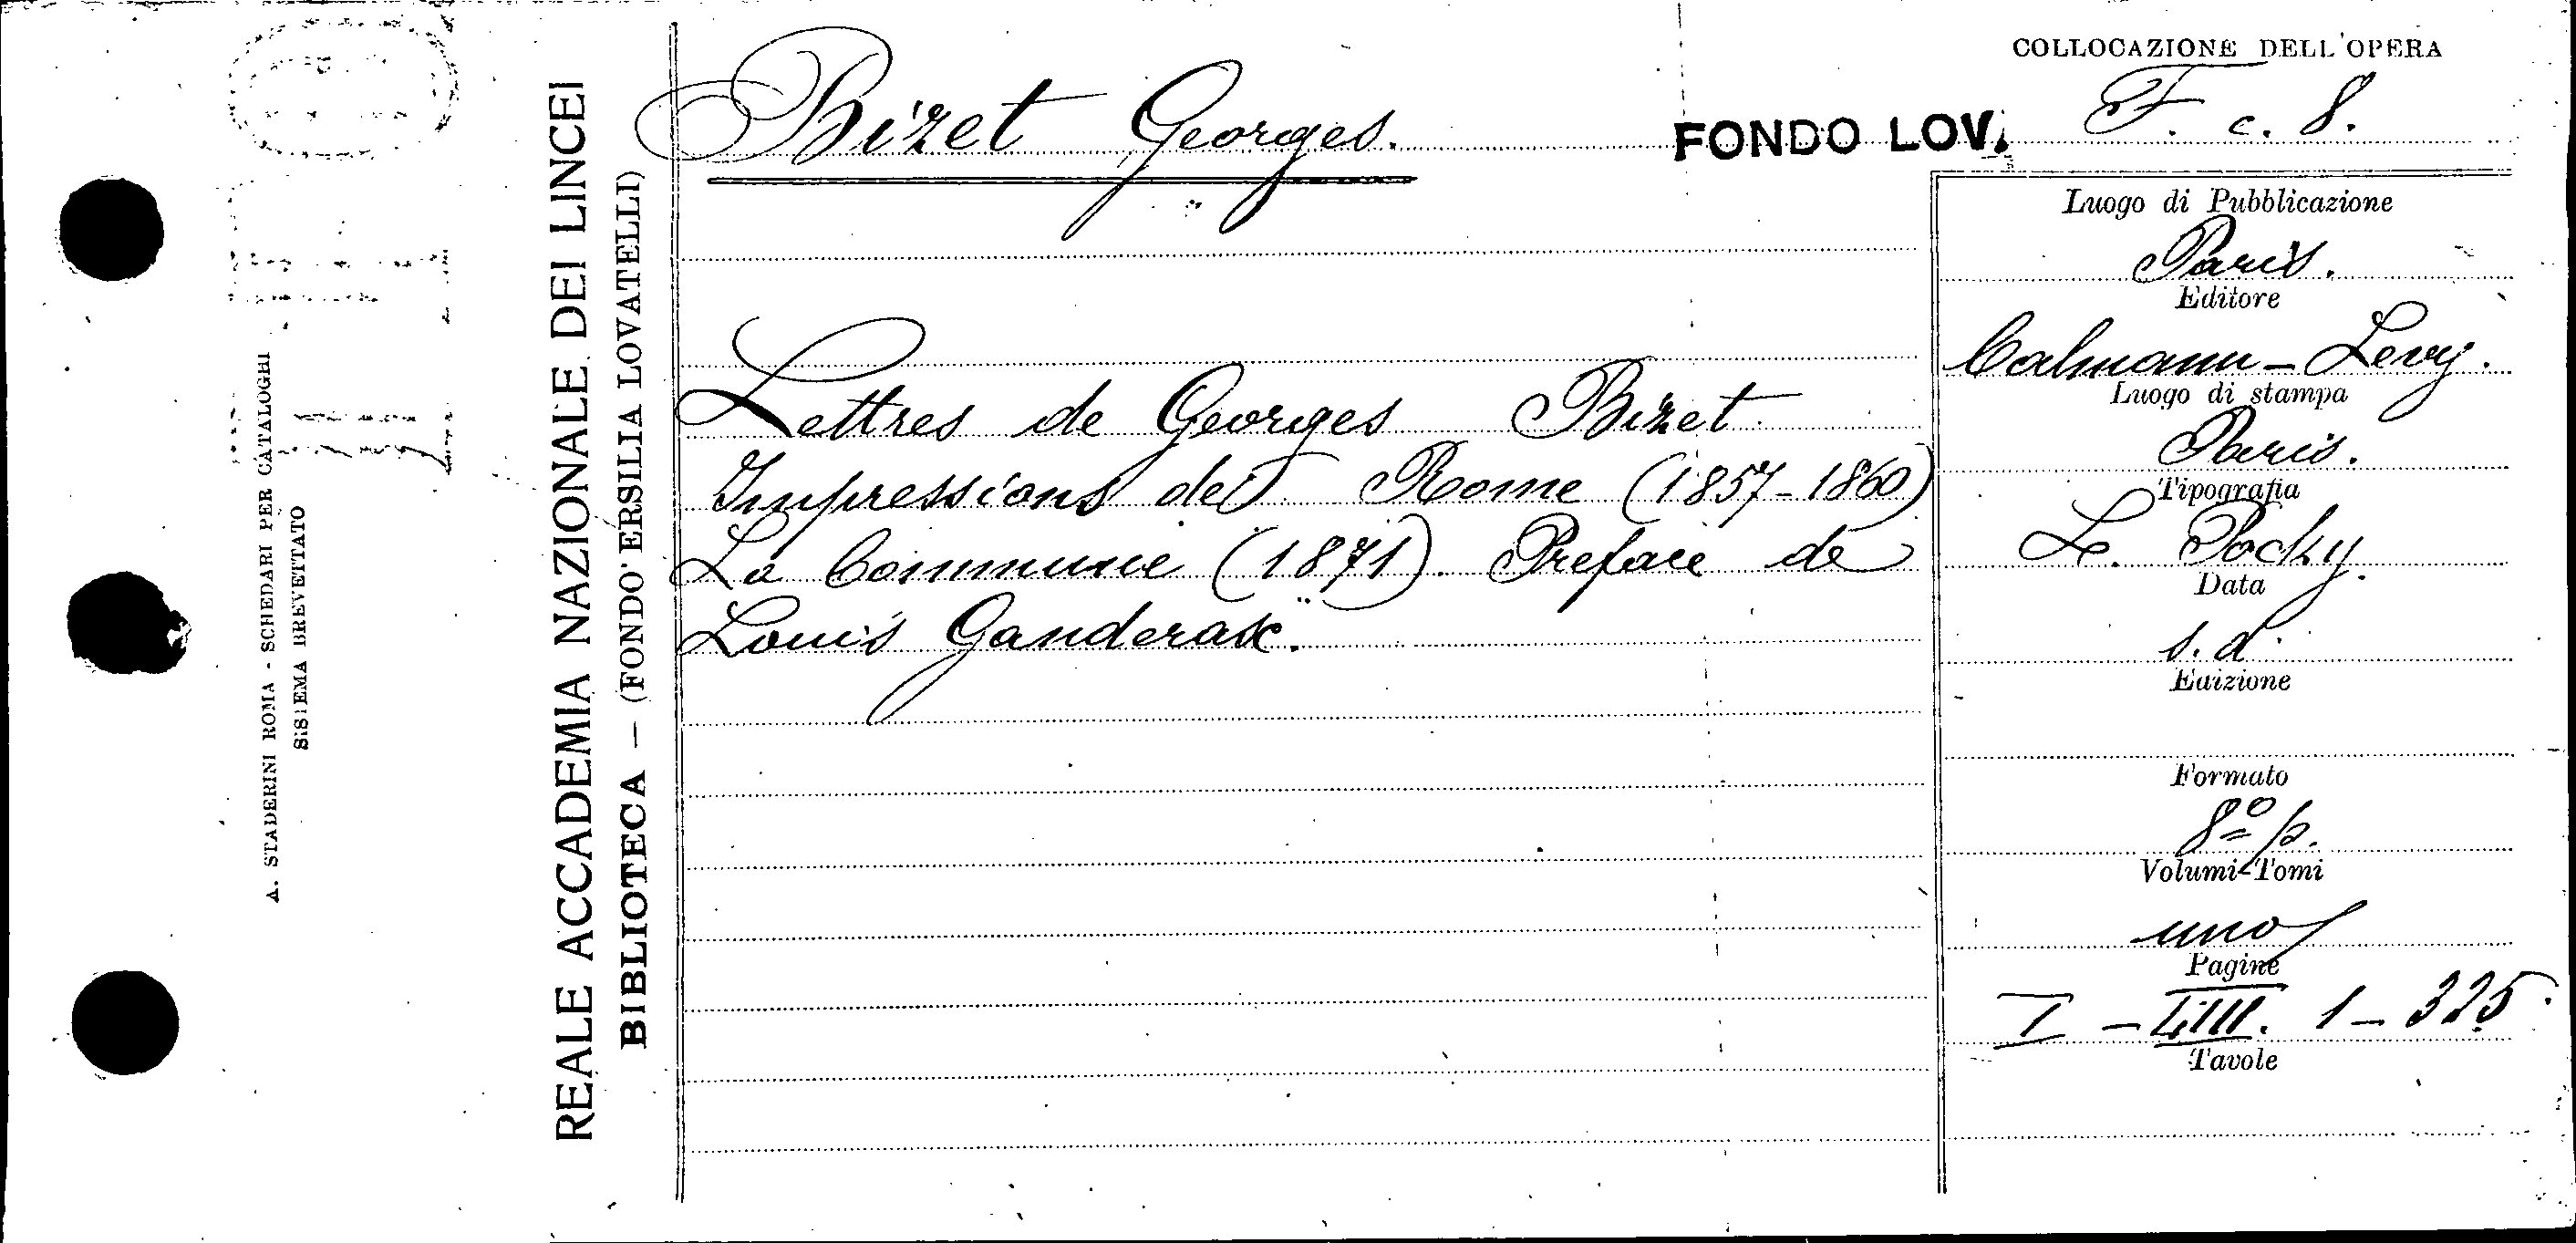 COLLOCAZIONE DELL'OPERA
Bizet Georges.
FONDO LOV.
F. c. 8.
REALE ACCADEMIA NAZIONALE DEI LINCEI
BIBLIOTECA — (FONDO ERSILIA LOVATELLI)
A. STADERINI ROMA - SCHEDARI PER CATALOGHI
SISTEMA BREVETTATO
Lettres de Georges Bizet
Impressions de Rome (1857-1860)
La Commune (1871). Preface de
Louis Ganderax.
Luogo di Pubblicazione
Paris.
Editore
Calmann-Levy.
Luogo di stampa
Paris.
Tipografia
L. Pochy.
Data
s. d.
Edizione
Formato
8º p.
Volumi-Tomi
uno
Pagine
I - LIII. 1 - 325.
Tavole